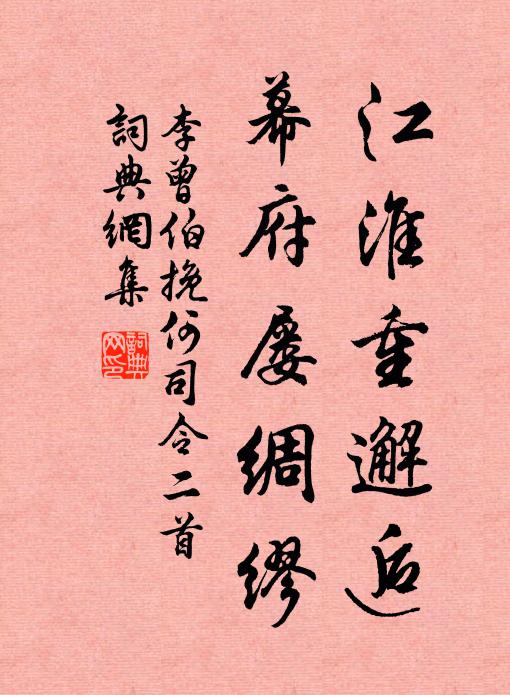 江淮重邂逅
幕府屡綢繆
李曾伯挽何司令二首
詞典網集
詞典网印